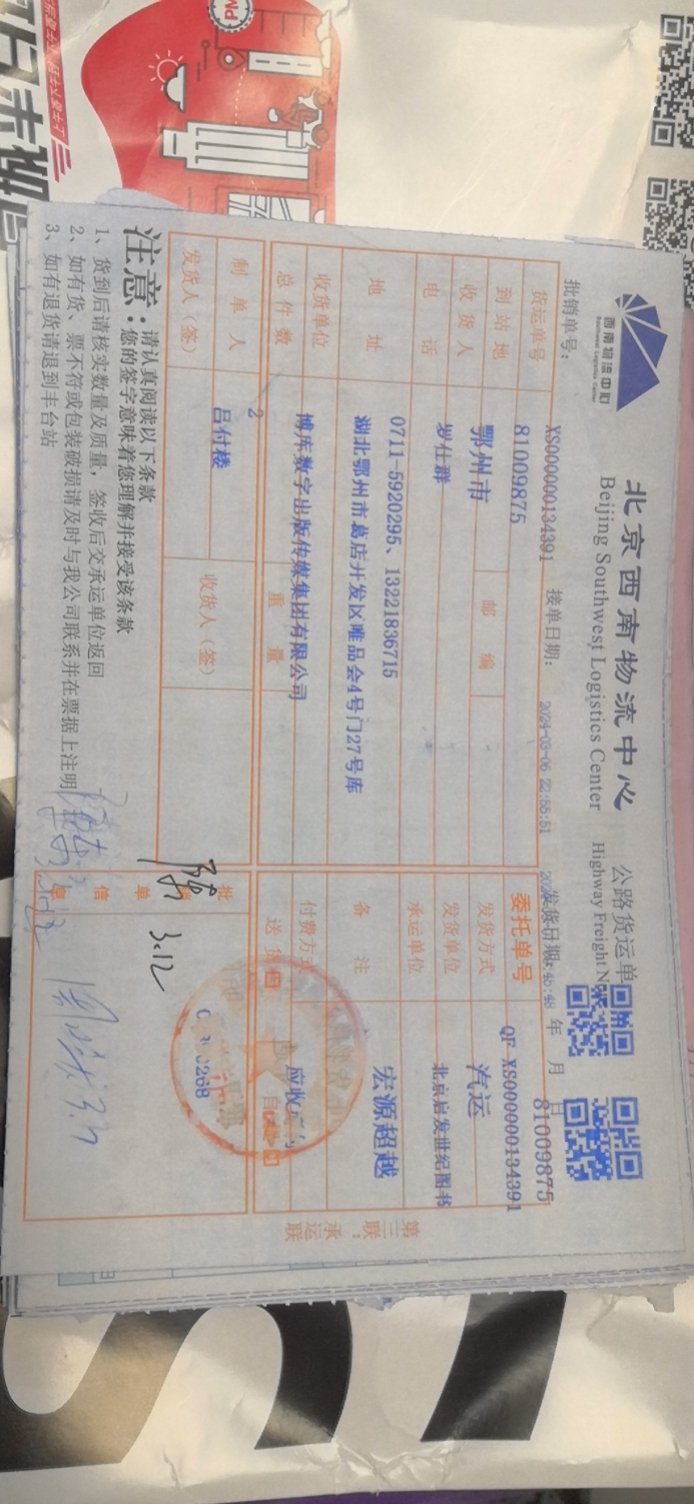 西南物流中心
Southwest Logistics Center
北京西南物流中心
Beijing Southwest Logistics Center
公路货运单
Highway Freight N
批销单号：
XS000000134391
接单日期：
2024-03-06 22:55:51
发货日期
年 月 日
81009875
货运单号
81009875
委托单号
QF-XS000000134391
到站地
鄂州市
邮编
发货方式
汽运
收货人
罗仕群
发货单位
北京启发世纪图书
电话
0711-5920295、13221836715
承运单位
地址
湖北鄂州市葛店开发区唯品会4号门27号库
备注
宏源超越
收货单位
博库数字出版传媒集团有限公司
付费方式
总件数
2
重量
送货
自
制单人
吕付楼
收货人（签）
发货人（签）
批
单
信
息
3.12
3.7
第三联：承运联
注意：
请认真阅读以下条款
您的签字意味着您理解并接受该条款
1、货到后请核实数量及质量，签收后交承运单位返回
2、如有货、票不符或包装破损请及时与我公司联系并在票据上注明
3、如有退货请退到丰台站